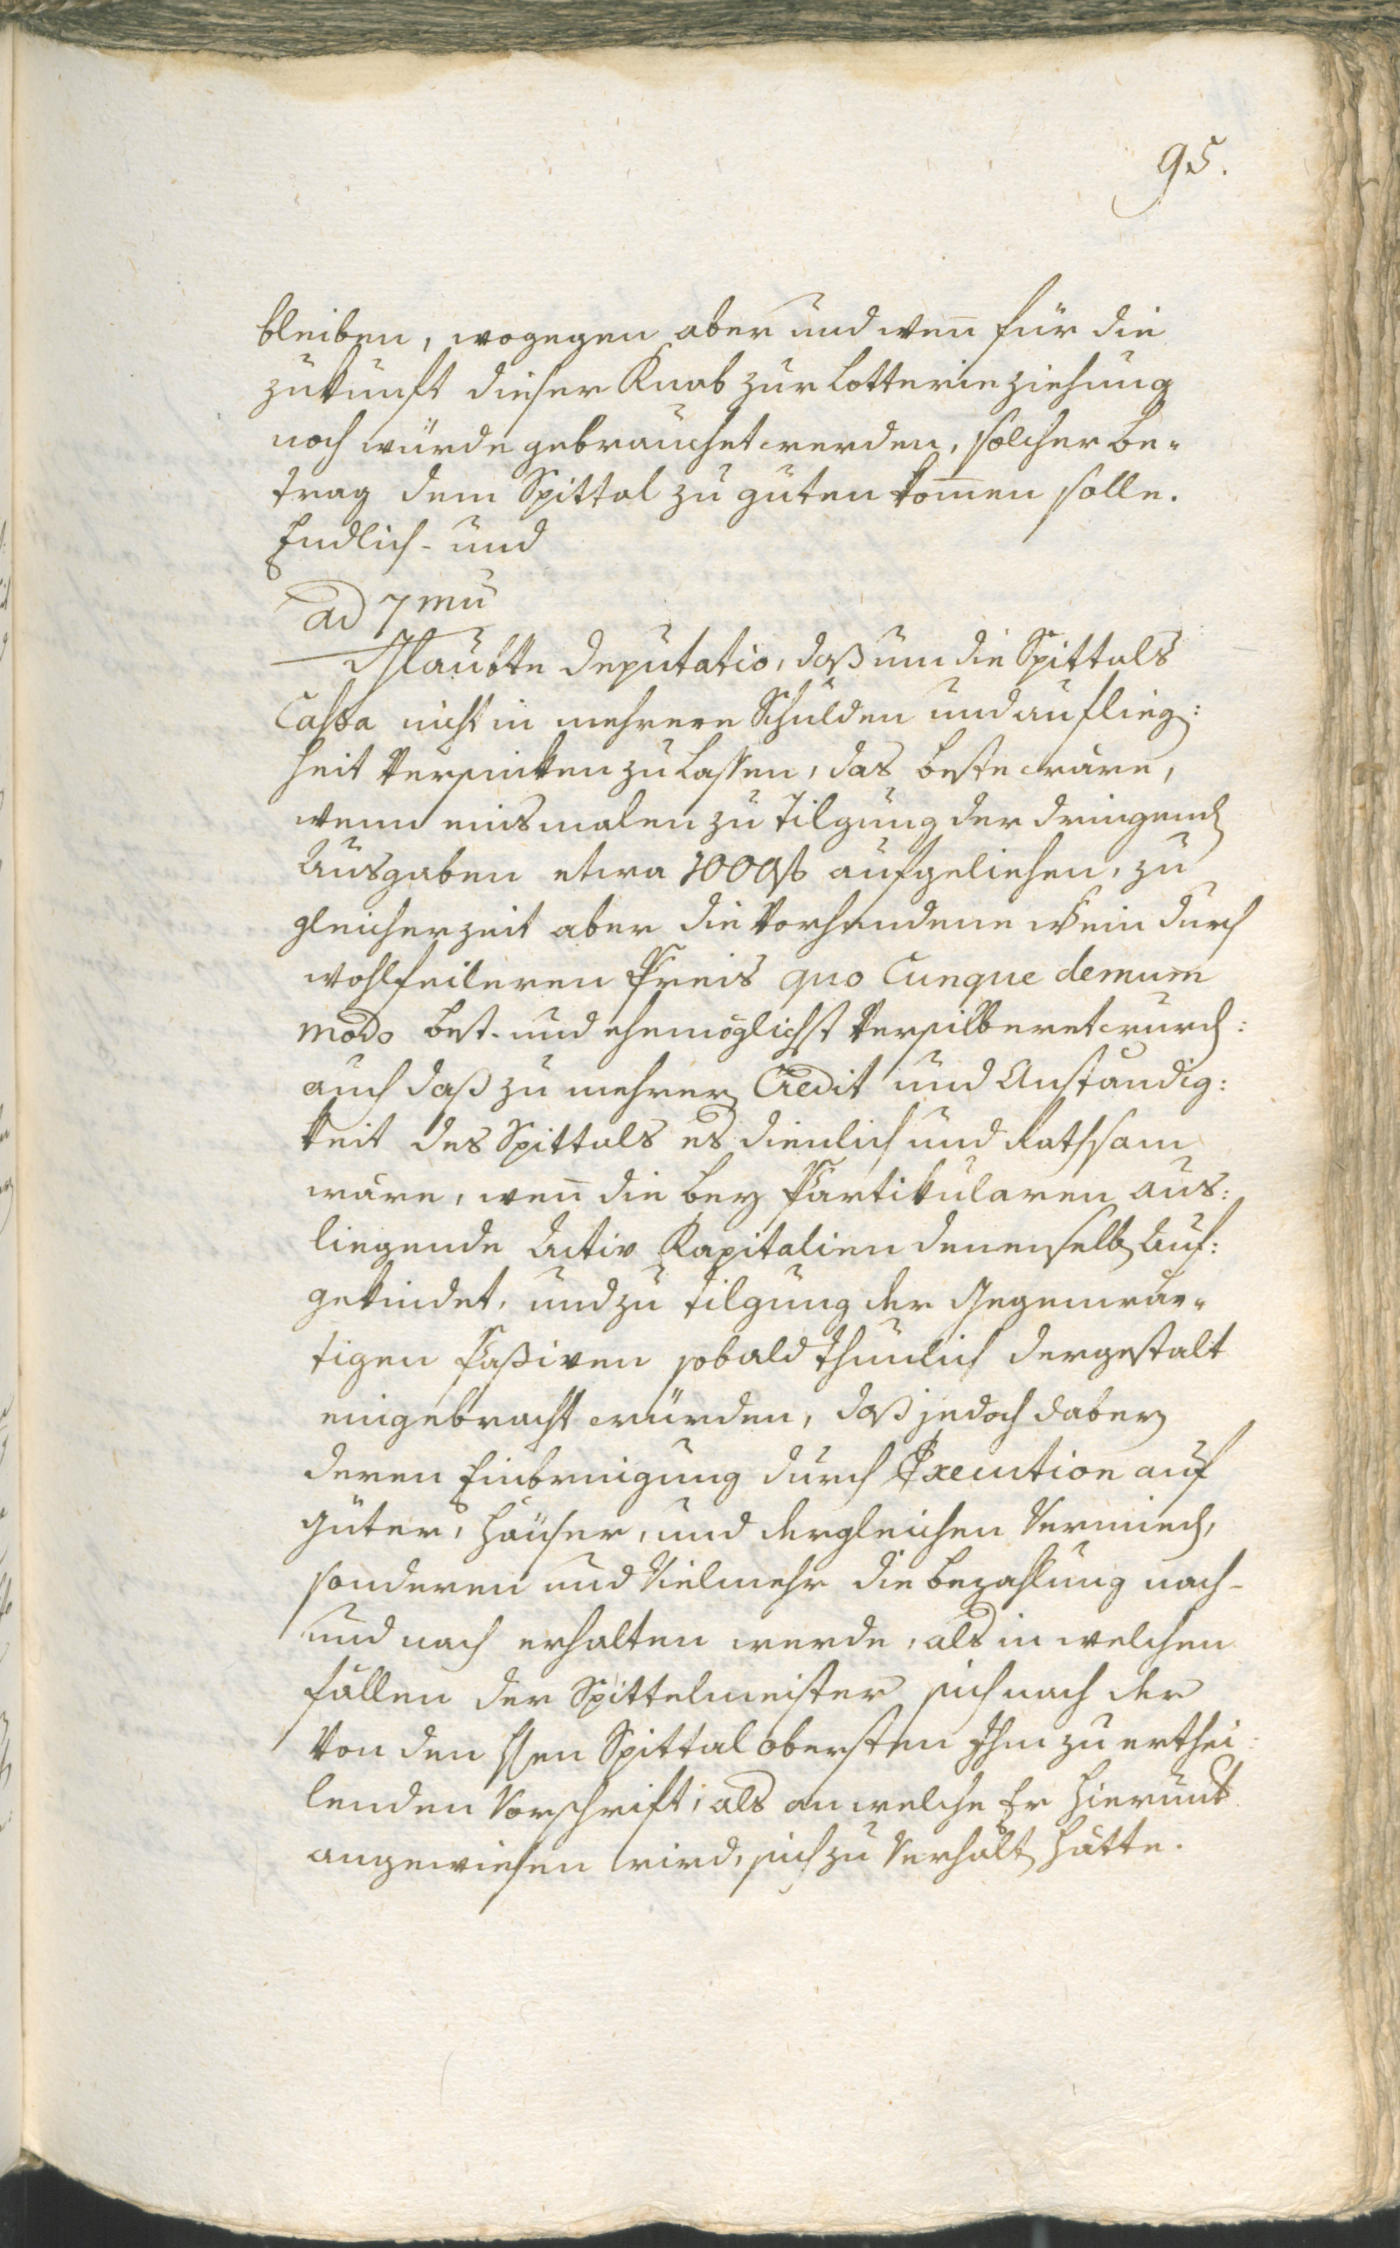 95.
bleiben, wogegen aber und wen̅ für die
zukunft dieser Knab zur Lotterieziehung
noch würde gebrauchet werden, solcher Be-
trag dem Spittal zu guten kom̅en solle.
Endlich- und
ad 7mu
Glaubte Deputatio, daß um die Spittals
Cassa nicht in mehrere Schulden und auflieg:
heit versinken zu lassen, das beste wäre,
wenn einsmalen zu Tilgung der dringend
Ausgaben etwa 1000 f aufgeliehen, zu
gleicherzeit aber die vorhandene Wein durch
wohlfeileren Preis quo Cunque demum
modo best- und ehemöglichst versilberet wurd:
auch daß zu mehrer Credit und Anständig:
keit des Spittals es dienlich und rathsam
wäre, wen̅ die bey Partikularen aus:
liegende Activ Kapitalien denenselb auf:
gekündet, und zu tilgung der Gegenwär-
tigen Paßiven sobald thunlich dergestalt
eingebracht würden, daß jedoch dabey
deren Einbringung durch Execution auf
Güter, Häuser, und dergleichen Vermied,
sonderen und Vielmehr die bezahlung nach-
und nach erhalten werde, als in welchen
fällen der Spittelmeister sich nach der
von den Hren Spittal obersten Ihm zu erthei:
lenden Vorschrift, als an welche Er hierumb
angewiesen wird, sich zu Verhalt hätte.